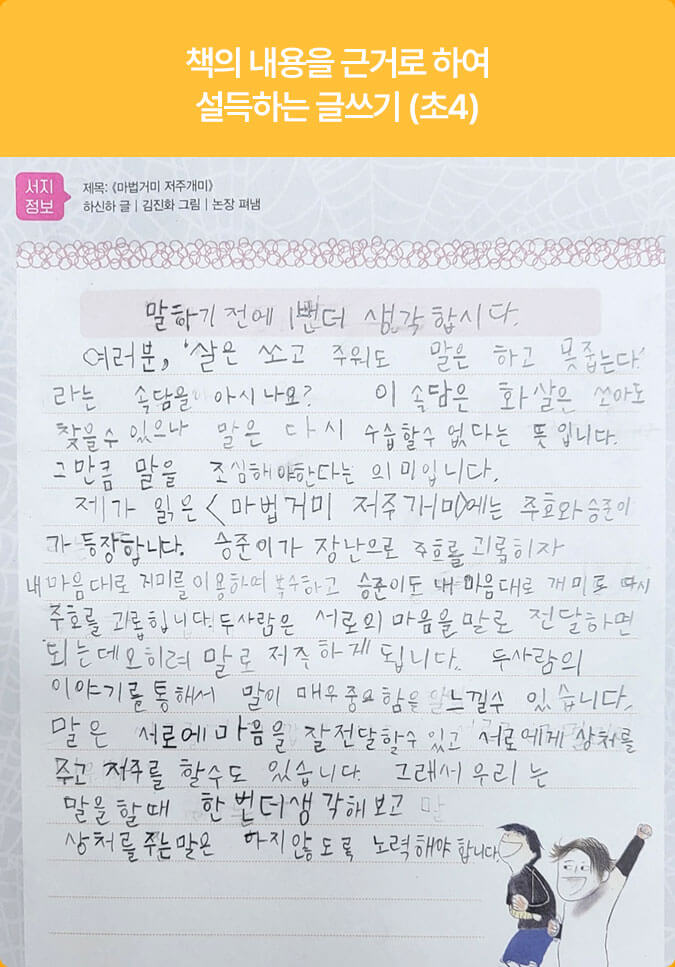 책의 내용을 근거로 하여
설득하는 글쓰기 (초4)
서지
정보
제목: 《마법거미 저주개미》
하신하 글 | 김진화 그림 | 논장 펴냄
말하기 전에 1번더 생각합시다.
여러분, '살은 쏘고 주워도 말은 하고 못줍는다'
라는 속담을 아시나요? 이 속담은 화살은 쏘아도
찾을수 있으나 말은 다시 수습할수 없다는 뜻입니다.
그만큼 말을 조심해야한다는 의미입니다.
제가 읽은 <마법거미 저주개미>에는 주호와 승준이
가 등장합니다. 승준이가 장난으로 주호를 괴롭히자
내 마음대로 거미를 이용하여 복수하고 승준이도 내 마음대로 개미로 다시
주호를 괴롭힙니다. 두사람은 서로의 마음을 말로 전달하면
되는데 오히려 말로 저주하게 됩니다. 두사람의
이야기를 통해서 말이 매우 중요함을 느낄수 있습니다.
말은 서로에 마음을 잘 전달할수 있고 서로에게 상처를
주고 저주를 할수도 있습니다. 그래서 우리는
말을 할때 한번더 생각해 보고
상처를 주는말은 하지않도록 노력해야 합니다.